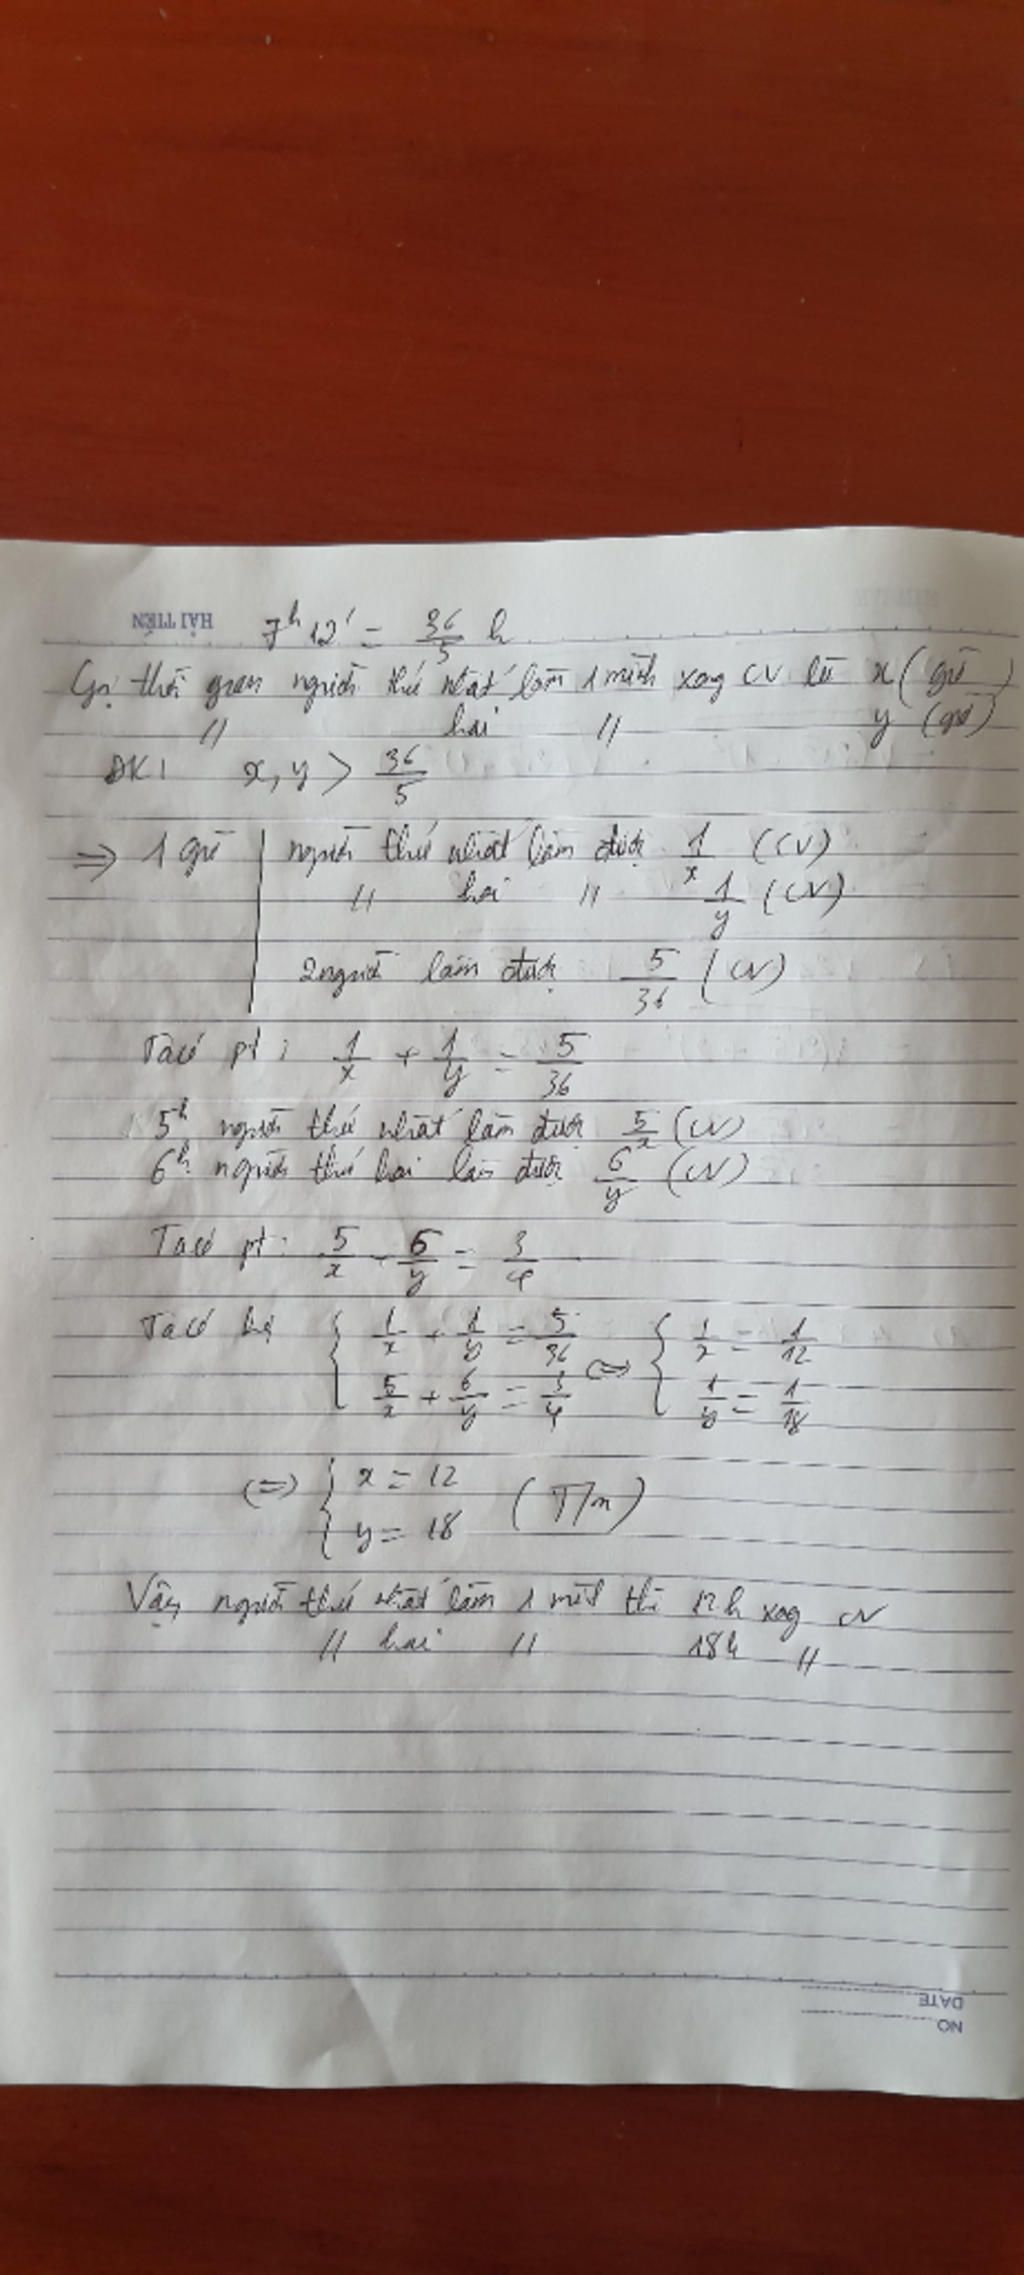 HẢI TIẾN
7h 12' = 36/5 h
Gọi thời gian người thứ nhất làm 1 mình xong CV là x (giờ)
// hai // y (giờ)
ĐK: x, y > 36/5
=> 1 giờ | người thứ nhất làm được 1/x (CV)
// hai // 1/y (CV)
2 người làm được 5/36 (CV)
Ta có pt: 1/x + 1/y = 5/36
5h người thứ nhất làm được 5/x (CV)
6h người thứ hai làm được 6/y (CV)
Ta có pt: 5/x - 6/y = 3/4
Ta có hệ { 1/x + 1/y = 5/36 <=> { 1/x = 1/12
5/x + 6/y = 3/4 1/y = 1/18
<=> { x = 12
y = 18 (T/m)
Vậy người thứ nhất làm 1 mình thì 12h xong CV
// hai // 18h //
DATE
NO